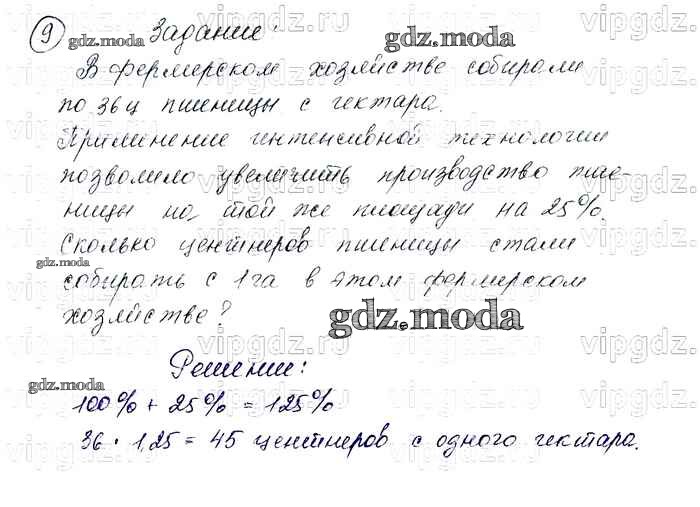 9 gdz.moda Задание:
gdz.moda
В фермерском хозяйстве собирали
по 36 ц пшеницы с гектара.
Применение интенсивной технологии
позволило увеличить производство пше-
ницы на той же площади на 25%.
Сколько центнеров пшеницы стали
gdz.moda
собирать с 1 га в этом фермерском
хозяйстве?
gdz.moda
Решение:
gdz.moda
100% + 25% = 125%
36 · 1,25 = 45 центнеров с одного гектара.
vipgdz.ru